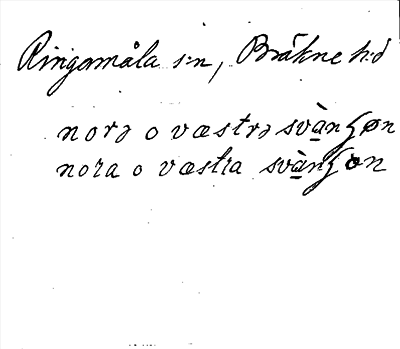 Ringamåla s:n, Bräkne h:d
norə o væstrə svàngøn
nora o væstra svàngøn